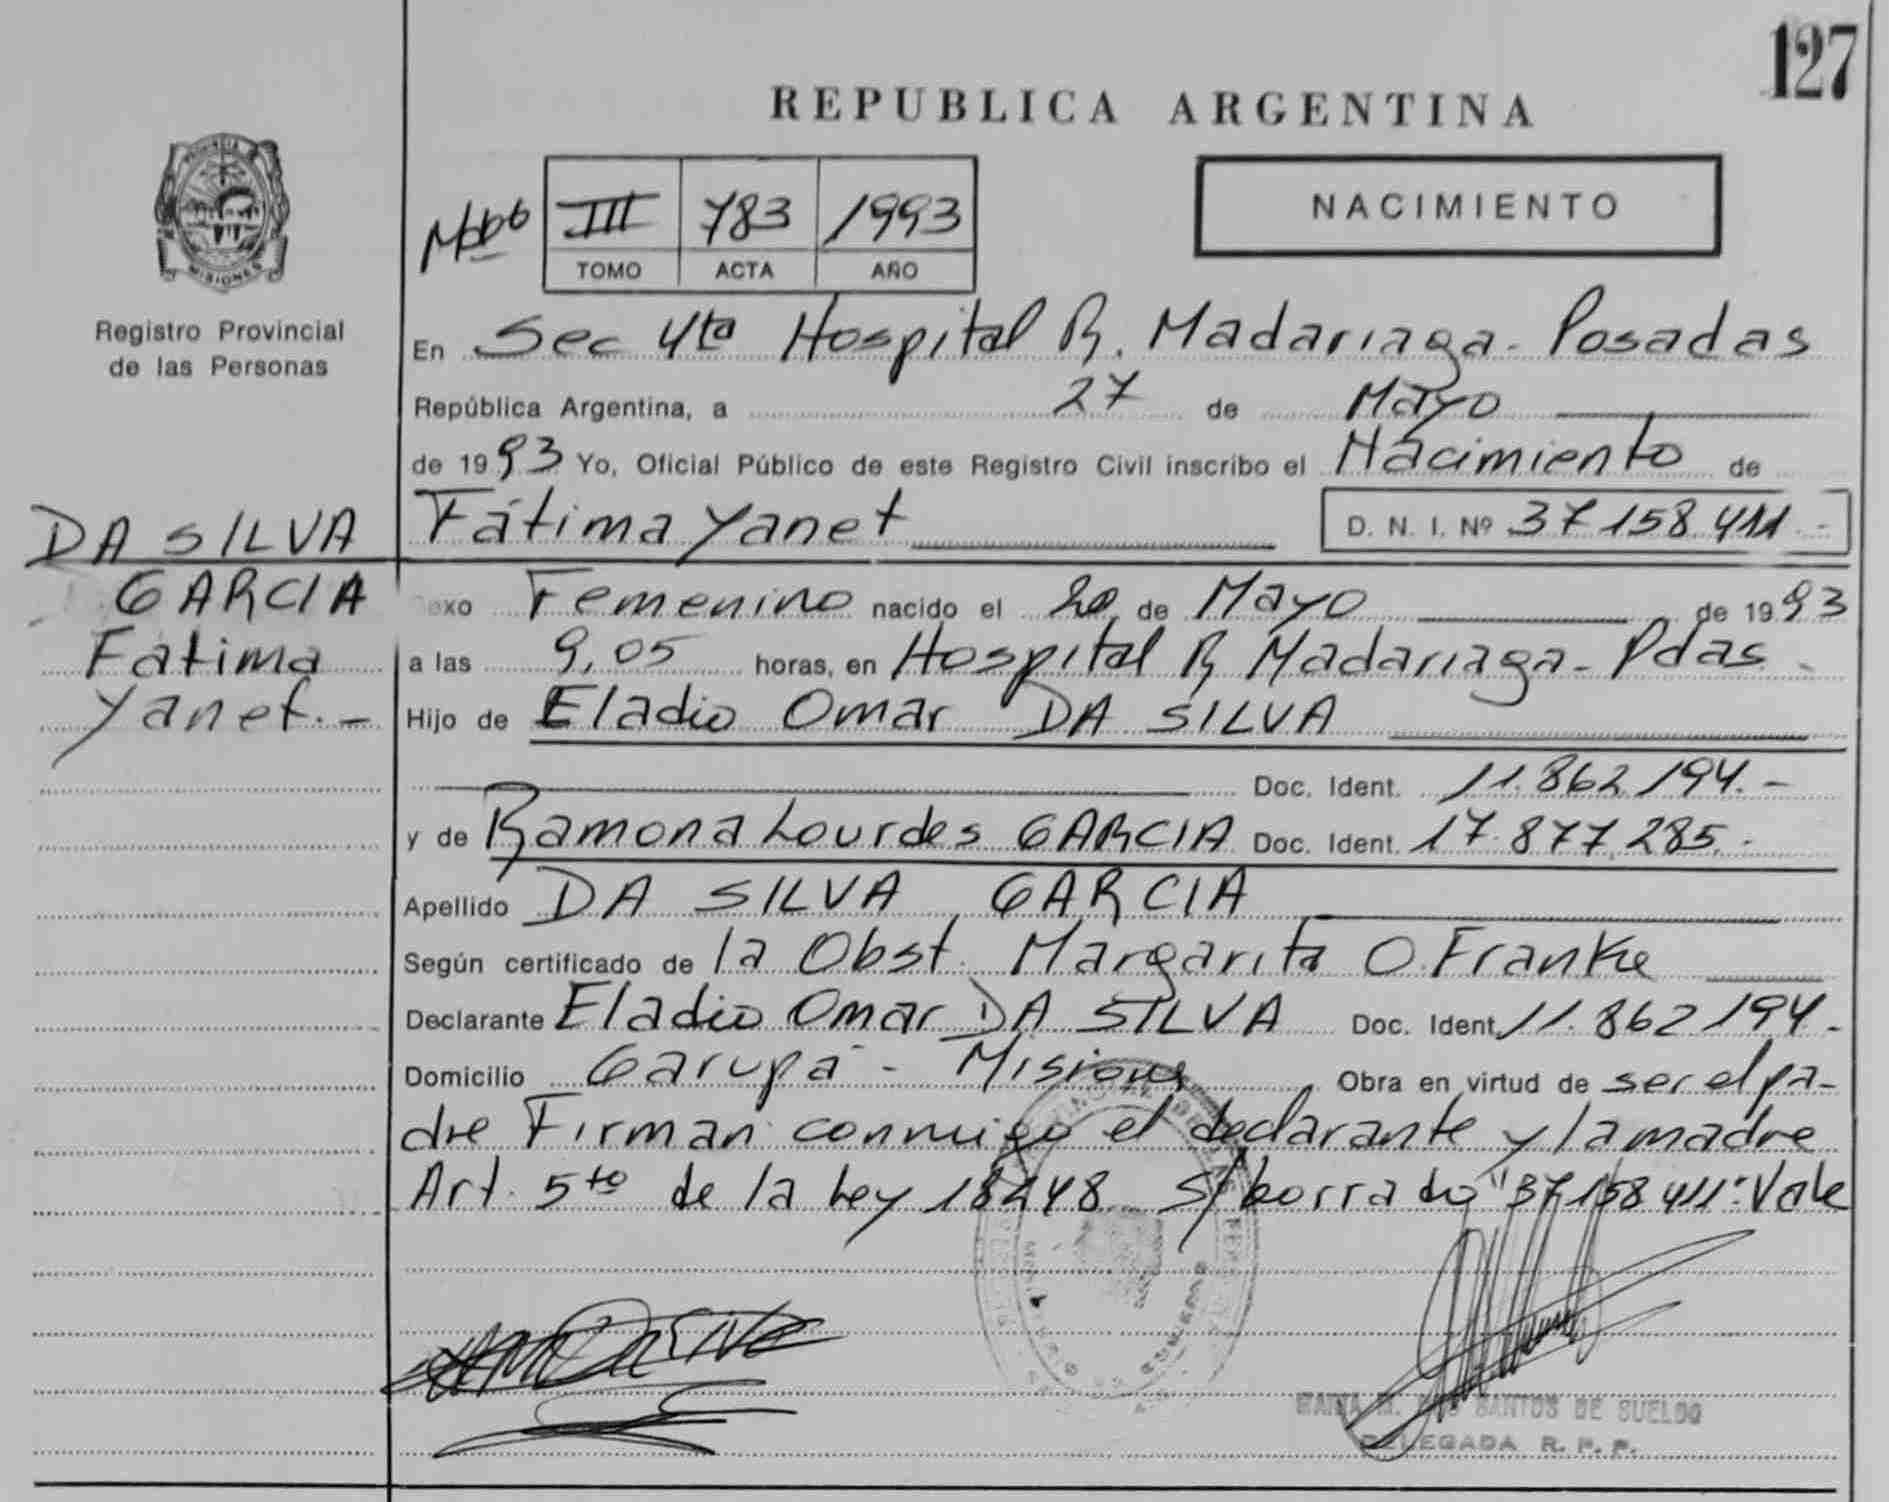 127
REPUBLICA ARGENTINA
PROVINCIA DE
MISIONES
Registro Provincial
de las Personas
III 783 1993
TOMO ACTA AÑO
NACIMIENTO
En Sec 4ta Hospital R. Madariaga - Posadas
República Argentina, a 27 de Mayo
de 1993 Yo, Oficial Público de este Registro Civil inscribo el Nacimiento de
DA SILVA
GARCIA
Fátima
Yanet.-
Fátima Yanet D. N. I. Nº 37 158 411 -
Sexo Femenino nacido el 20 de Mayo de 1993
a las 9,05 horas, en Hospital R Madariaga - Pdas -
Hijo de Eladio Omar DA SILVA
Doc. Ident. 11.862 194.-
y de Ramona Lourdes GARCIA Doc. Ident. 17.877.285.-
Apellido DA SILVA GARCIA
Según certificado de la Obst. Margarita O. Franke
Declarante Eladio Omar DA SILVA Doc. Ident. 11.862 194.-
Domicilio Garupá - Misiones Obra en virtud de ser el pa-
dre Firman conmigo el declarante y la madre
Art. 5to de la Ley 18248 S/borrado "37158411" Vale
SANTOS DE SUELDO
DELEGADA R. P. P.